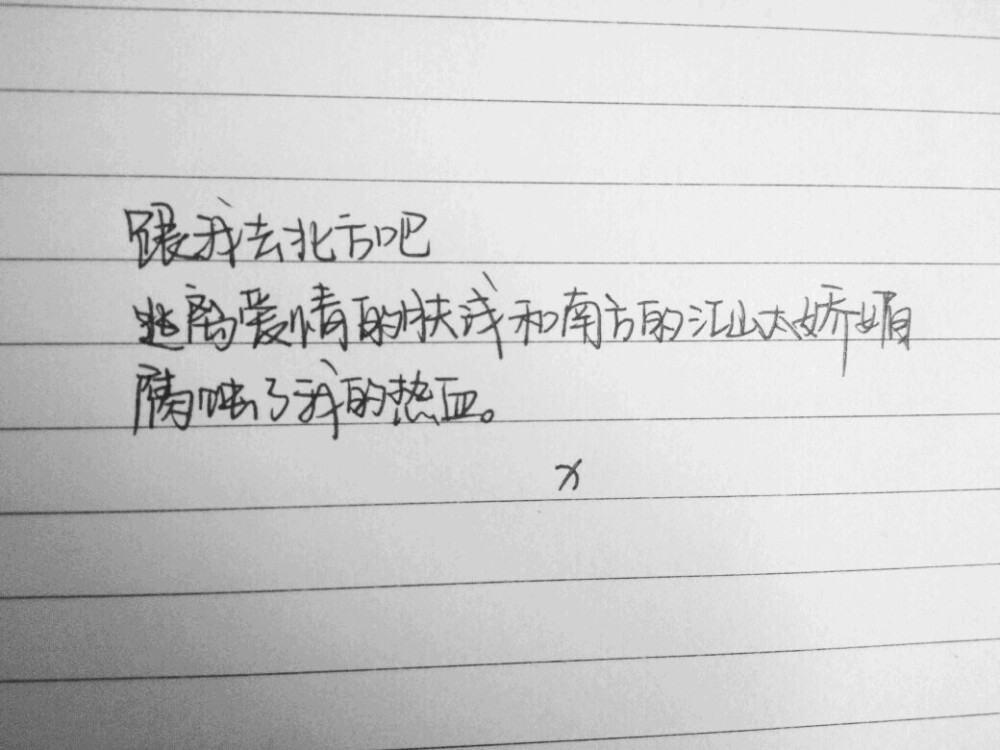 跟我去北方吧
逃离爱情的和南方的江山太娇媚
腐蚀了我的热血。
x